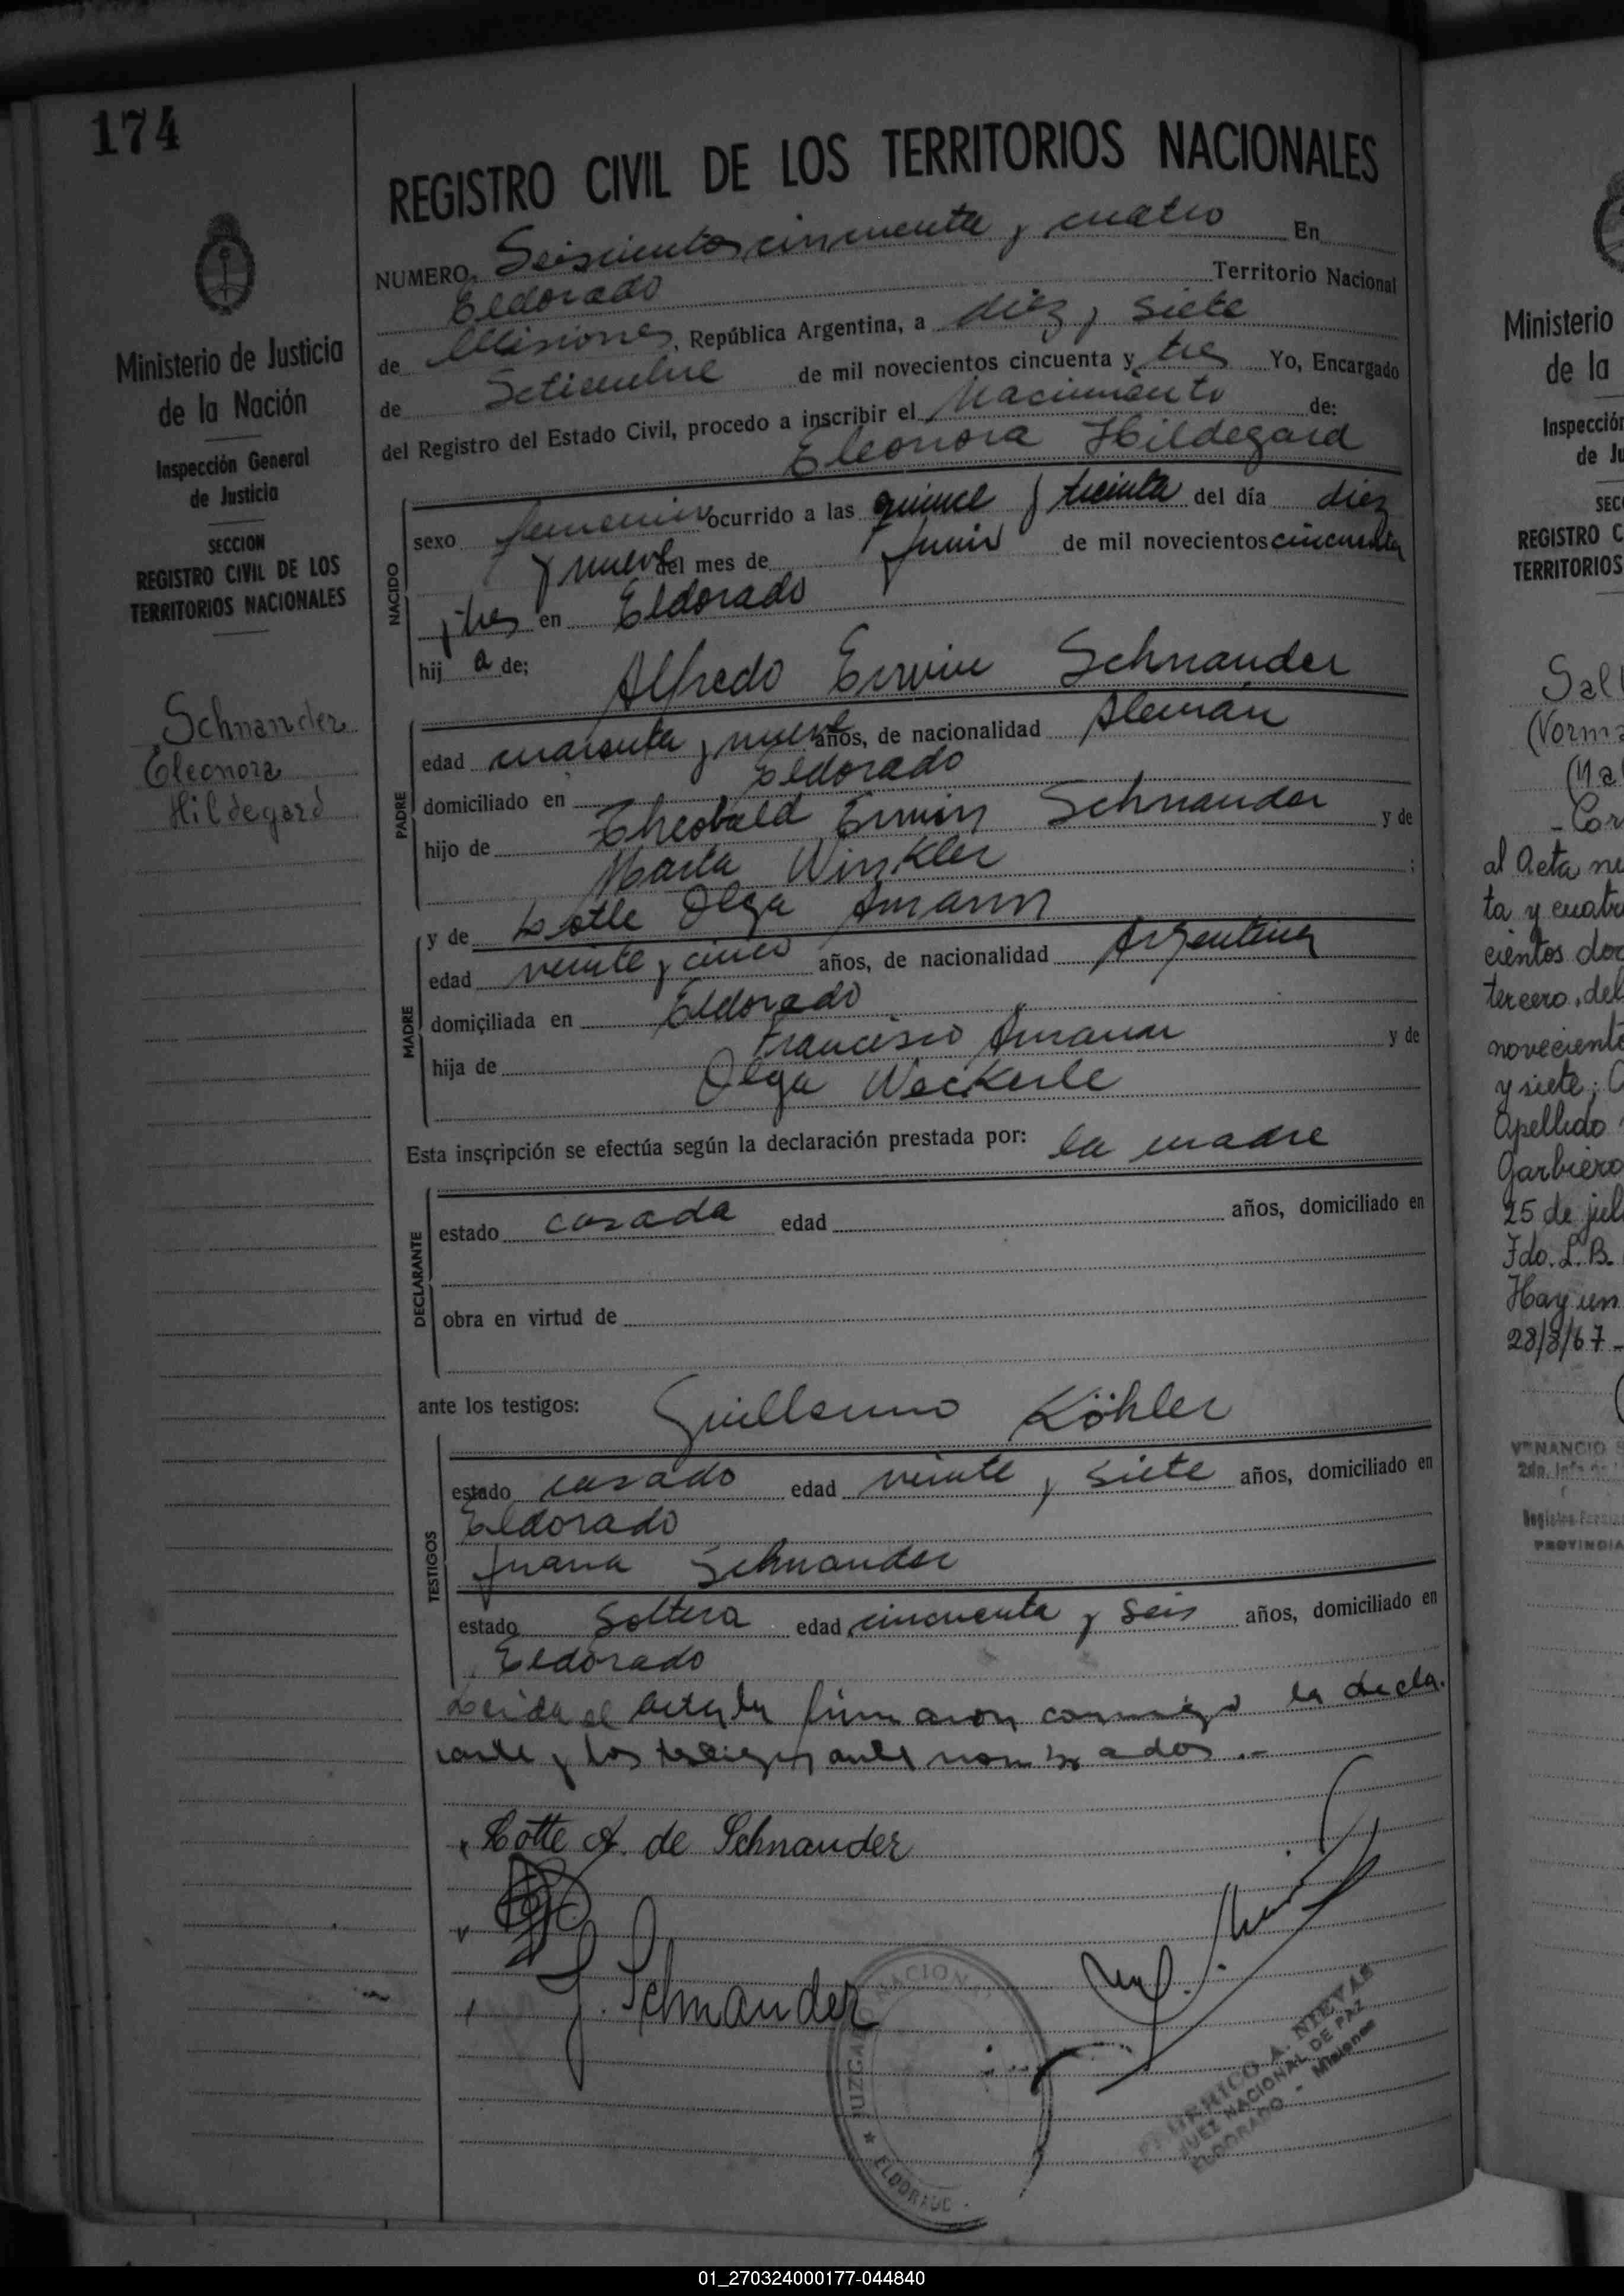 174
Ministerio de Justicia
de la Nación
Inspección General
de Justicia
SECCION
REGISTRO CIVIL DE LOS
TERRITORIOS NACIONALES
Schnander
Eleonora
Hildegard
REGISTRO CIVIL DE LOS TERRITORIOS NACIONALES
NUMERO Seiscientos cincuenta y cuatro En
Eldorado Territorio Nacional
de Misiones, República Argentina, a diez y siete
de Setiembre de mil novecientos cincuenta y tres Yo, Encargado
del Registro del Estado Civil, procedo a inscribir el Nacimiento de:
Eleonora Hildegard
NACIDO
sexo femenino ocurrido a las quince y treinta del día diez
y nueve del mes de Junio de mil novecientos cincuenta
y tres en Eldorado
hij a de: Alfredo Erwin Schnander
PADRE
edad cuarenta y nueve años, de nacionalidad Alemán
domiciliado en Eldorado
hijo de Theobald Erwin Schnander y de
Marta Winkler ;
y de Lotte Olga Amann
MADRE
edad veinte y cinco años, de nacionalidad Argentina
domiciliada en Eldorado
hija de Francisco Amann y de
Olga Weckerle
Esta inscripción se efectúa según la declaración prestada por: la madre
DECLARANTE
estado casada edad años, domiciliado en
obra en virtud de
ante los testigos: Guillermo Köhler
TESTIGOS
estado casado edad veinte y siete años, domiciliado en
Eldorado
Juana Schnander
estado Soltera edad cincuenta y seis años, domiciliado en
Eldorado
Leida el acta la firmaron conmigo la decla-
rante y los testigos ante nombrados .-
Lotte A. de Schnander
J. Schnander
JUZGADO NACION
★ ELDORADO
A. NIEVAS
JUEZ NACIONAL DE PAZ
ELDORADO - Misiones
Ministerio
de la
Inspección
de Ju
SEC
REGISTRO C
TERRITORIOS
Sal
(Norma
al Acta nu
ta y cuatro
cientos doc
tercero, del
noveciento
y siete;
Apellido
Garbiero
25 de jul
Fdo. L. B.
Hay un
28/8/67 -
VENANCIO
PROVINCIA
01_270324000177-044840